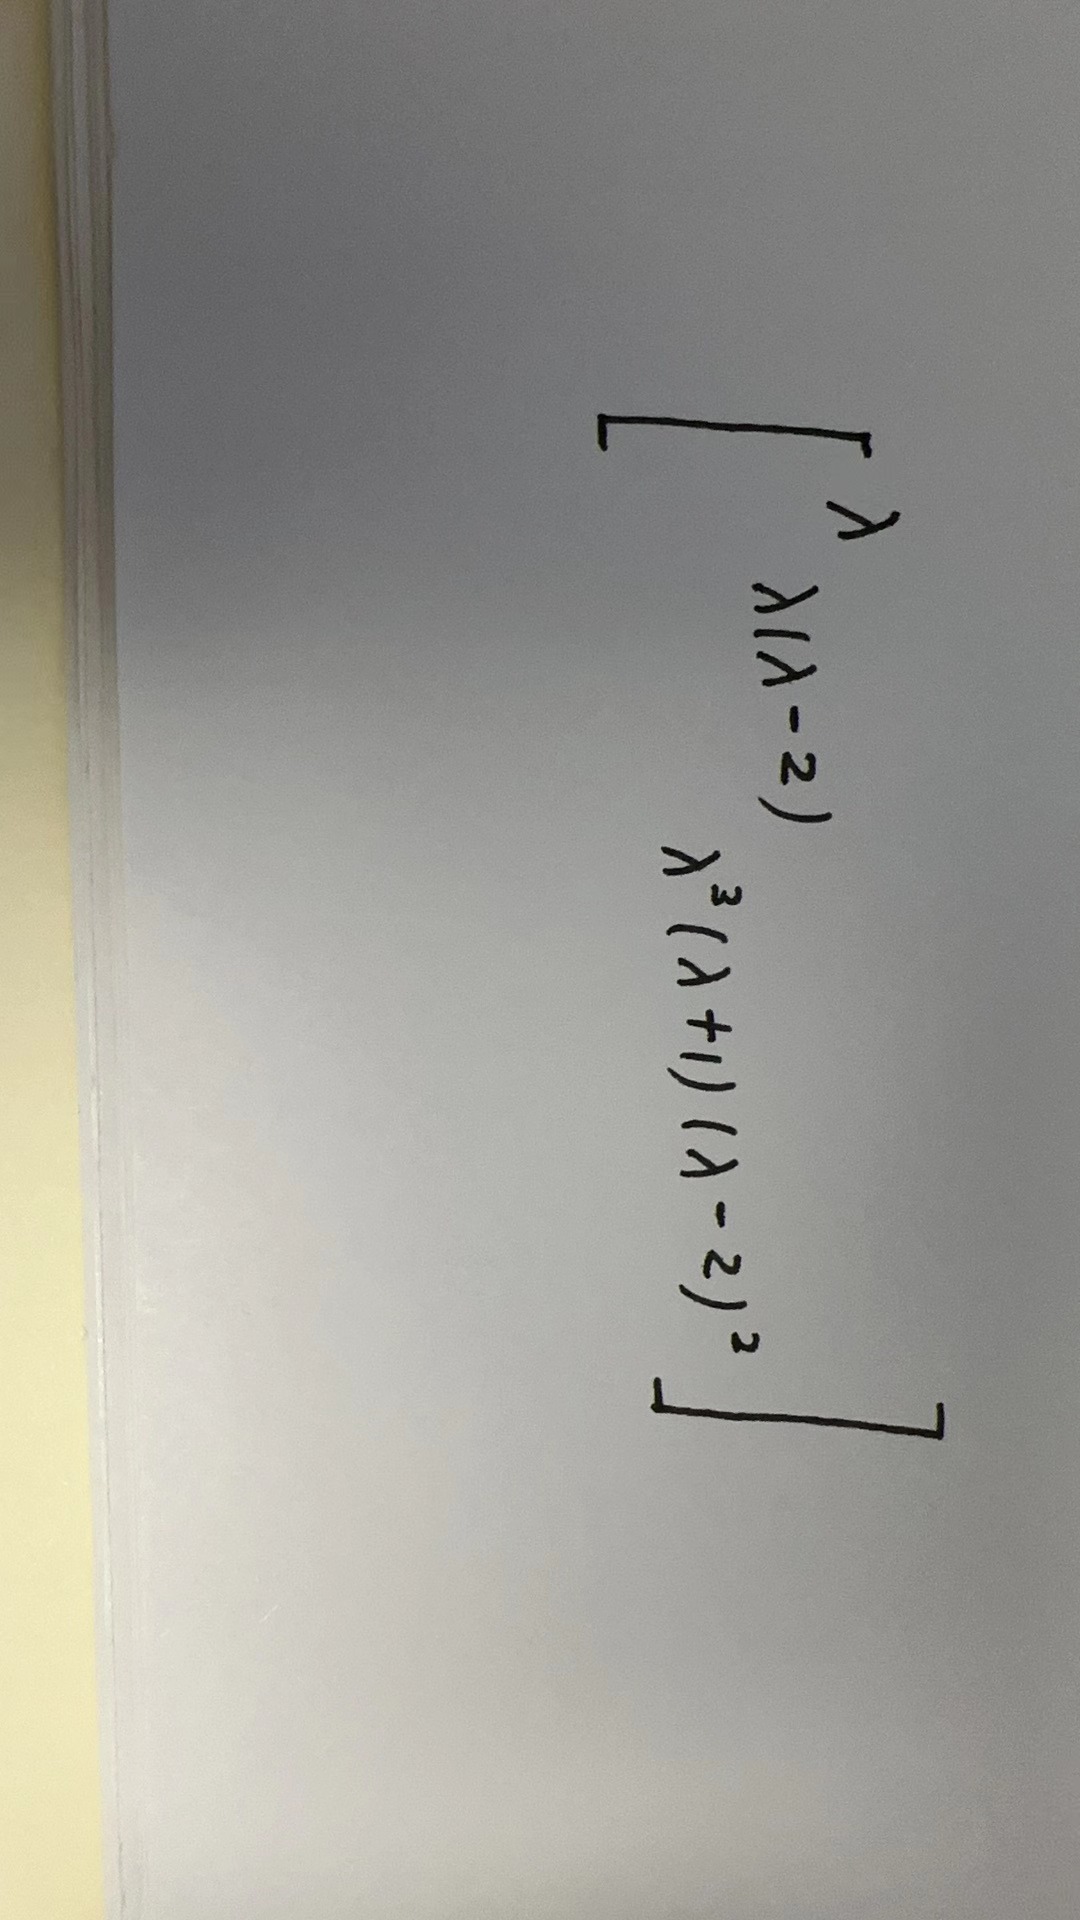 λ
λ(λ-2)
λ³(λ+1)(λ-2)²